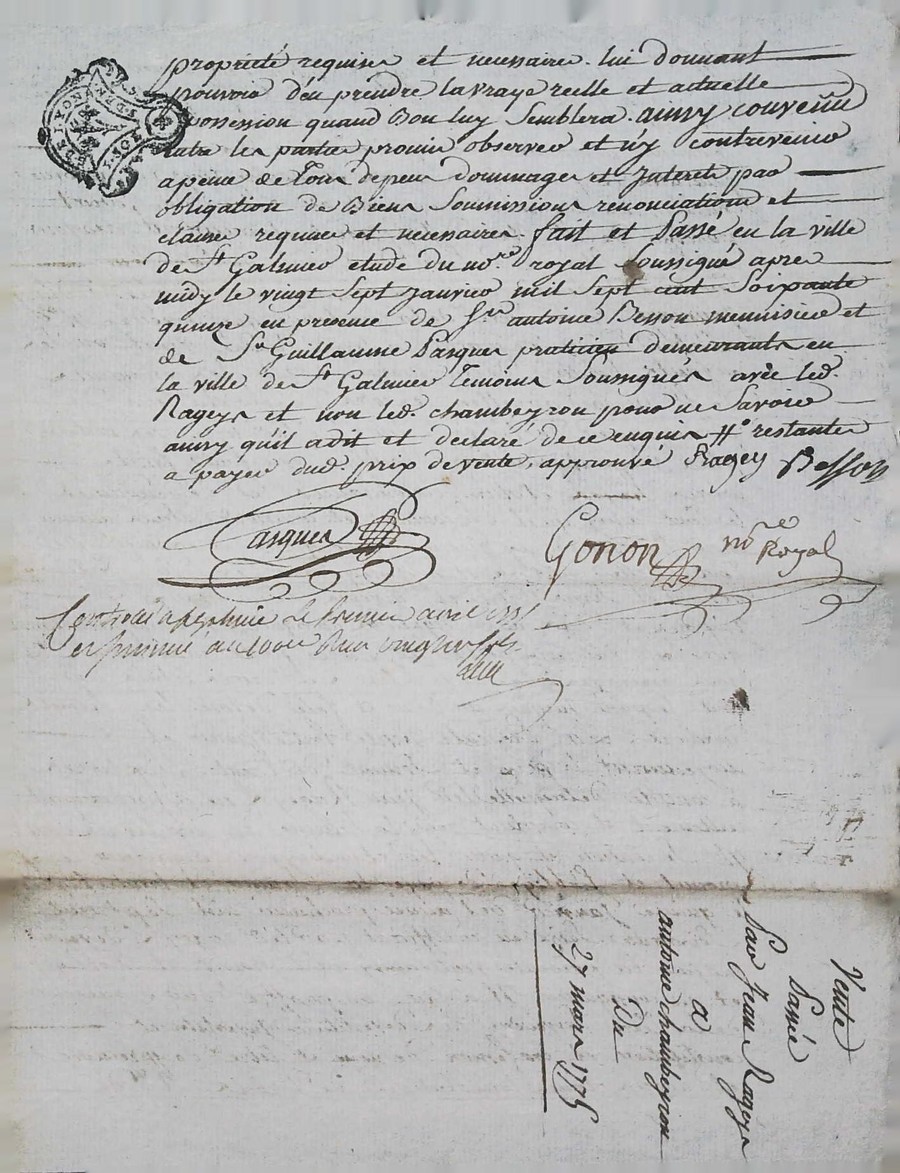 propriété requises et necessaires lui donnant
pouvoir d'en prendre la vraye reelle et actuelle
possession quand Bon luy Semblera. ainsy convenu
entre les parties promis observer et n'y contrevenir
a peine de tous depens dommages et Interets par
obligation de Biens Soumissions renonciations et
clauses requises et necessaires. fait et Passé en la ville
de St Galmier etude du nore. royal Soussigné apres
midy le vingt Sept Janvier mil Sept cent Soixante
quinze en presence de Sr. antoine Besson menuisier et
de Sr Guillaume Pasques praticien demeurants en
la ville de St Galmier temoins Soussignés avec led.
Rageys et non led. chambeyron pour ne Savoir
ainsy qu'il a dit et declaré de ce enquis # restantes
a payer dud. prix de vente, approuvé Ragey Besson
Pasques
Gonon nore Royal
le premier avril
Vente
Passée
Par Jean Rageys
a
antoine chambeyron
Du
27 mars 1775